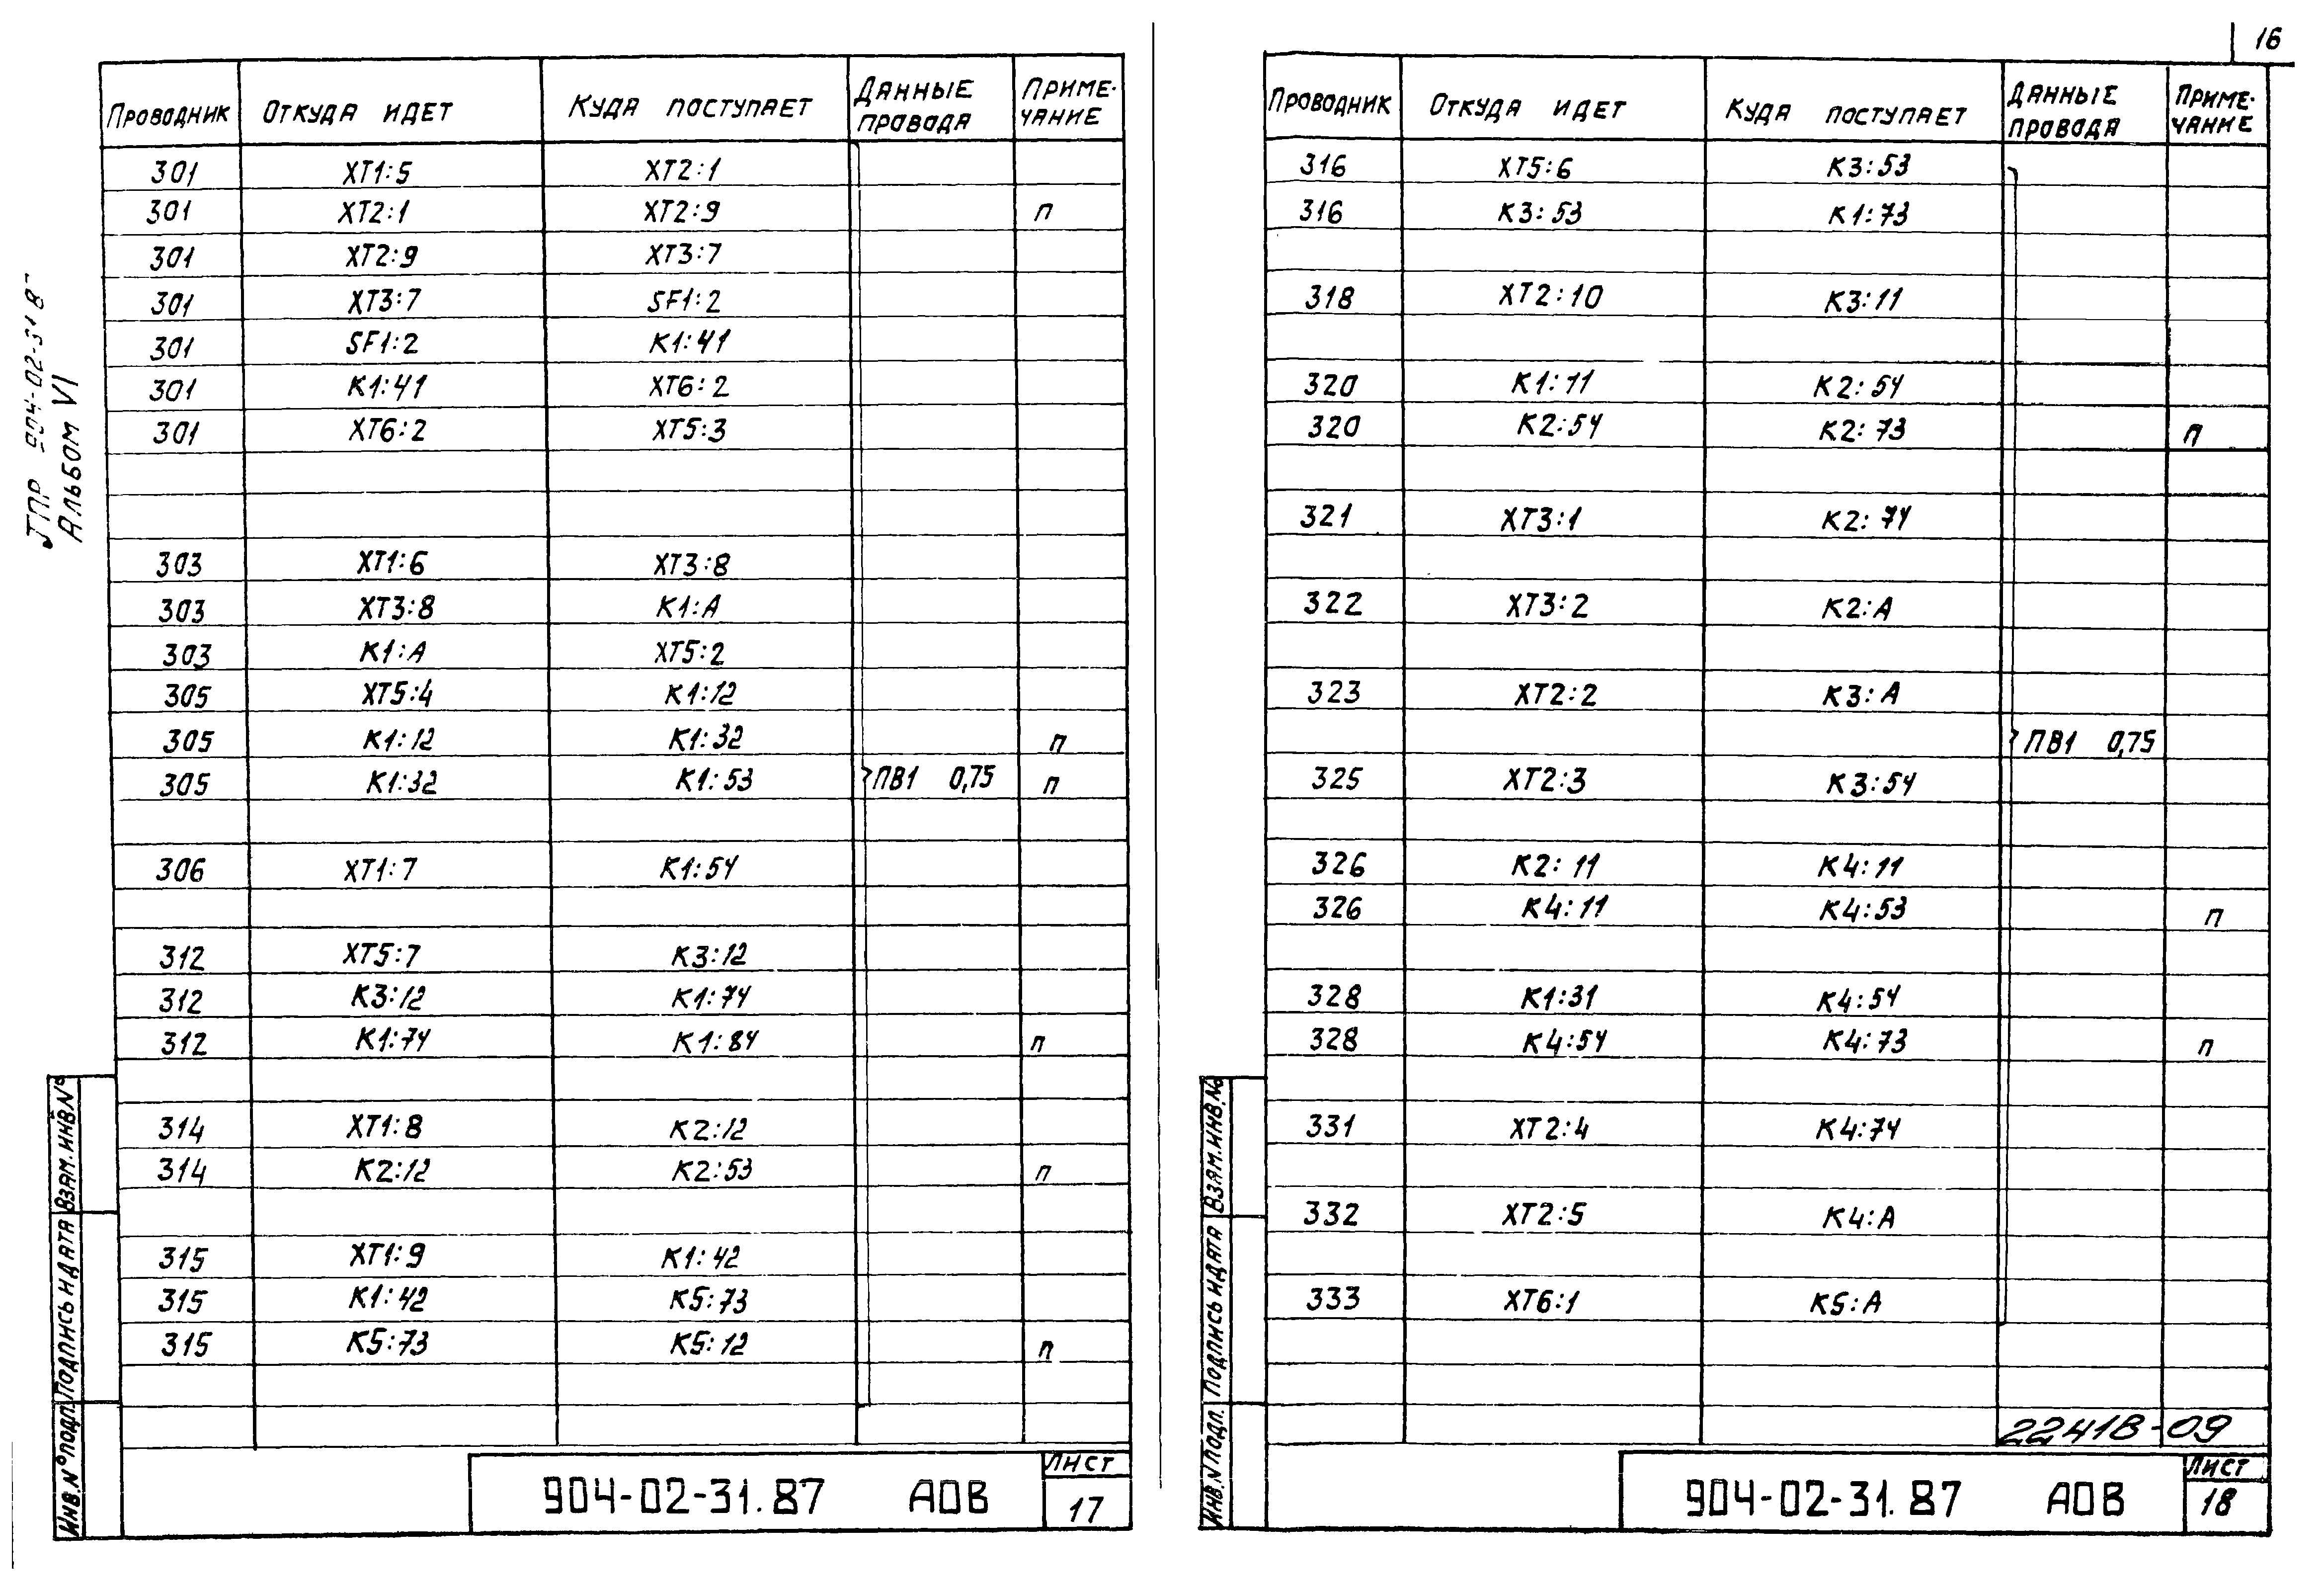 16
ТПР 904-02-31.87
Альбом VI
Проводник Откуда идет Куда поступает Данные провода Примечание
301 XT1:5 XT2:1
301 XT2:1 XT2:9 п
301 XT2:9 XT3:7
301 XT3:7 SF1:2
301 SF1:2 K1:41
301 K1:41 XT6:2
301 XT6:2 XT5:3
303 XT1:6 XT3:8
303 XT3:8 K1:A
303 K1:A XT5:2
305 XT5:4 K1:12
305 K1:12 K1:32 п
305 K1:32 K1:53 ПВ1 0,75 п
306 XT1:7 K1:54
312 XT5:7 K3:12
312 K3:12 K1:74
312 K1:74 K1:84 п
314 XT1:8 K2:12
314 K2:12 K2:53 п
315 XT1:9 K1:42
315 K1:42 K5:73
315 K5:73 K5:12 п
Взам.инв.№
Подпись и дата
Инв.№ подл.
904-02-31.87 АОВ
Лист
17
Проводник Откуда идет Куда поступает Данные провода Примечание
316 XT5:6 K3:53
316 K3:53 K1:73
318 XT2:10 K3:11
320 K1:11 K2:54
320 K2:54 K2:73 п
321 XT3:1 K2:74
322 XT3:2 K2:A
323 XT2:2 K3:A
ПВ1 0,75
325 XT2:3 K3:54
326 K2:11 K4:11
326 K4:11 K4:53 п
328 K1:31 K4:54
328 K4:54 K4:73 п
331 XT2:4 K4:74
332 XT2:5 K4:A
333 XT6:1 K5:A
22418-09
Взам.инв.№
Подпись и дата
Инв.N подл.
904-02-31.87 АОВ
Лист
18